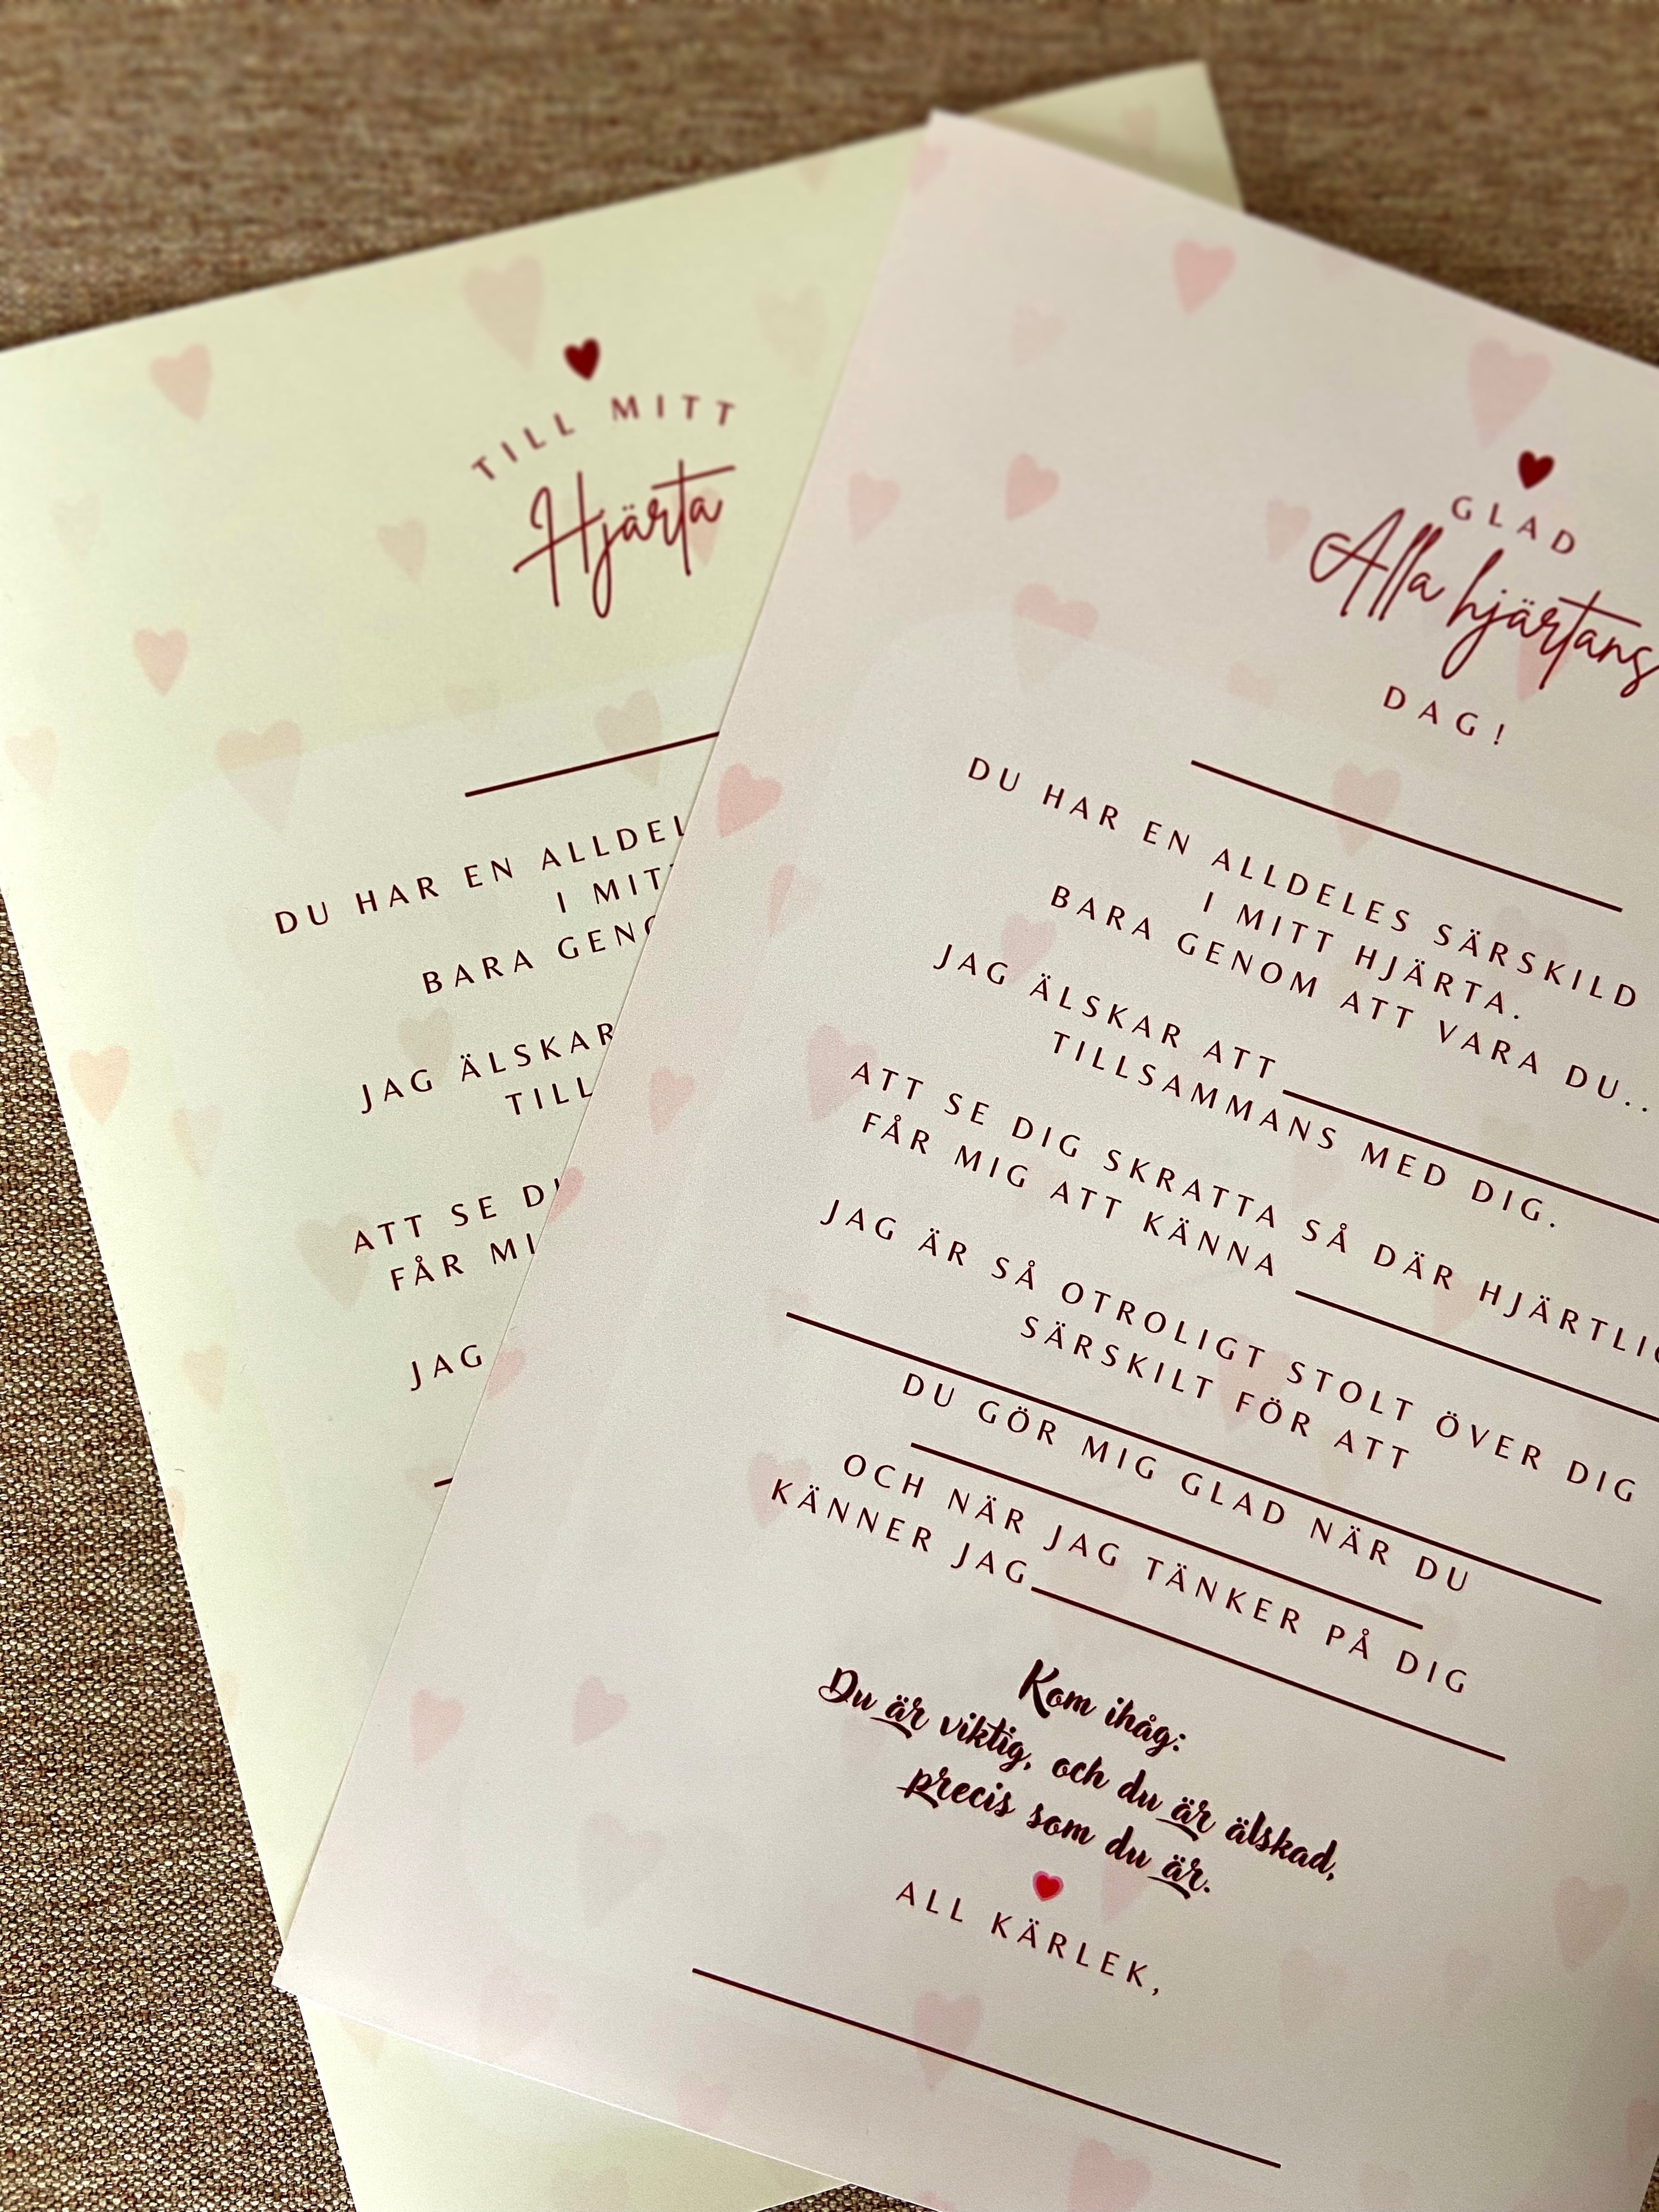 TILL MITT
Hjärta
DU HAR EN
I
BARA
JAG ÄLSKAR
ATT SE
FÅR
JAG
GLAD
Alla hjärtans
DAG!
DU HAR EN ALLDELES SÄRSKILD
I MITT HJÄRTA.
BARA GENOM ATT VARA DU..
JAG ÄLSKAR ATT
TILLSAMMANS MED DIG.
ATT SE DIG SKRATTA SÅ DÄR
FÅR MIG ATT KÄNNA
JAG ÄR SÅ OTROLIGT STOLT ÖVER DIG
SÄRSKILT FÖR ATT
DU GÖR MIG GLAD NÄR DU
OCH NÄR JAG TÄNKER PÅ DIG
KÄNNER JAG
Kom ihåg:
Du är viktig, och du är älskad,
precis som du är.
ALL KÄRLEK,